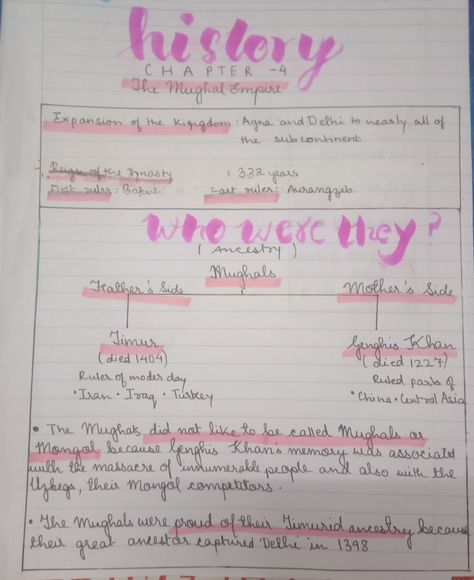 history
CHAPTER -4
The Mughal Empire
Expansion of the Kingdom : Agra and Delhi to nearly all of
the subcontinent
Reign of the Dynasty : 332 years
First ruler : Babur Last ruler : Aurangzeb
who were they?
( Ancestry )
Mughals
Father's Side Mother's Side
Timur Genghis Khan
(died 1404) (died 1227)
Ruler of moder day Ruled parts of
• Iran • Iraq • Turkey • China • Central Asia
• The Mughals did not like to be called Mughals or
Mongol because Genghis Khan's memory was associated
with the massacre of innumerable people and also with the
Uzbegs, their Mongol competitors.
• The Mughals were proud of their Timurid ancestry because
their great ancestor captured Delhi in 1398